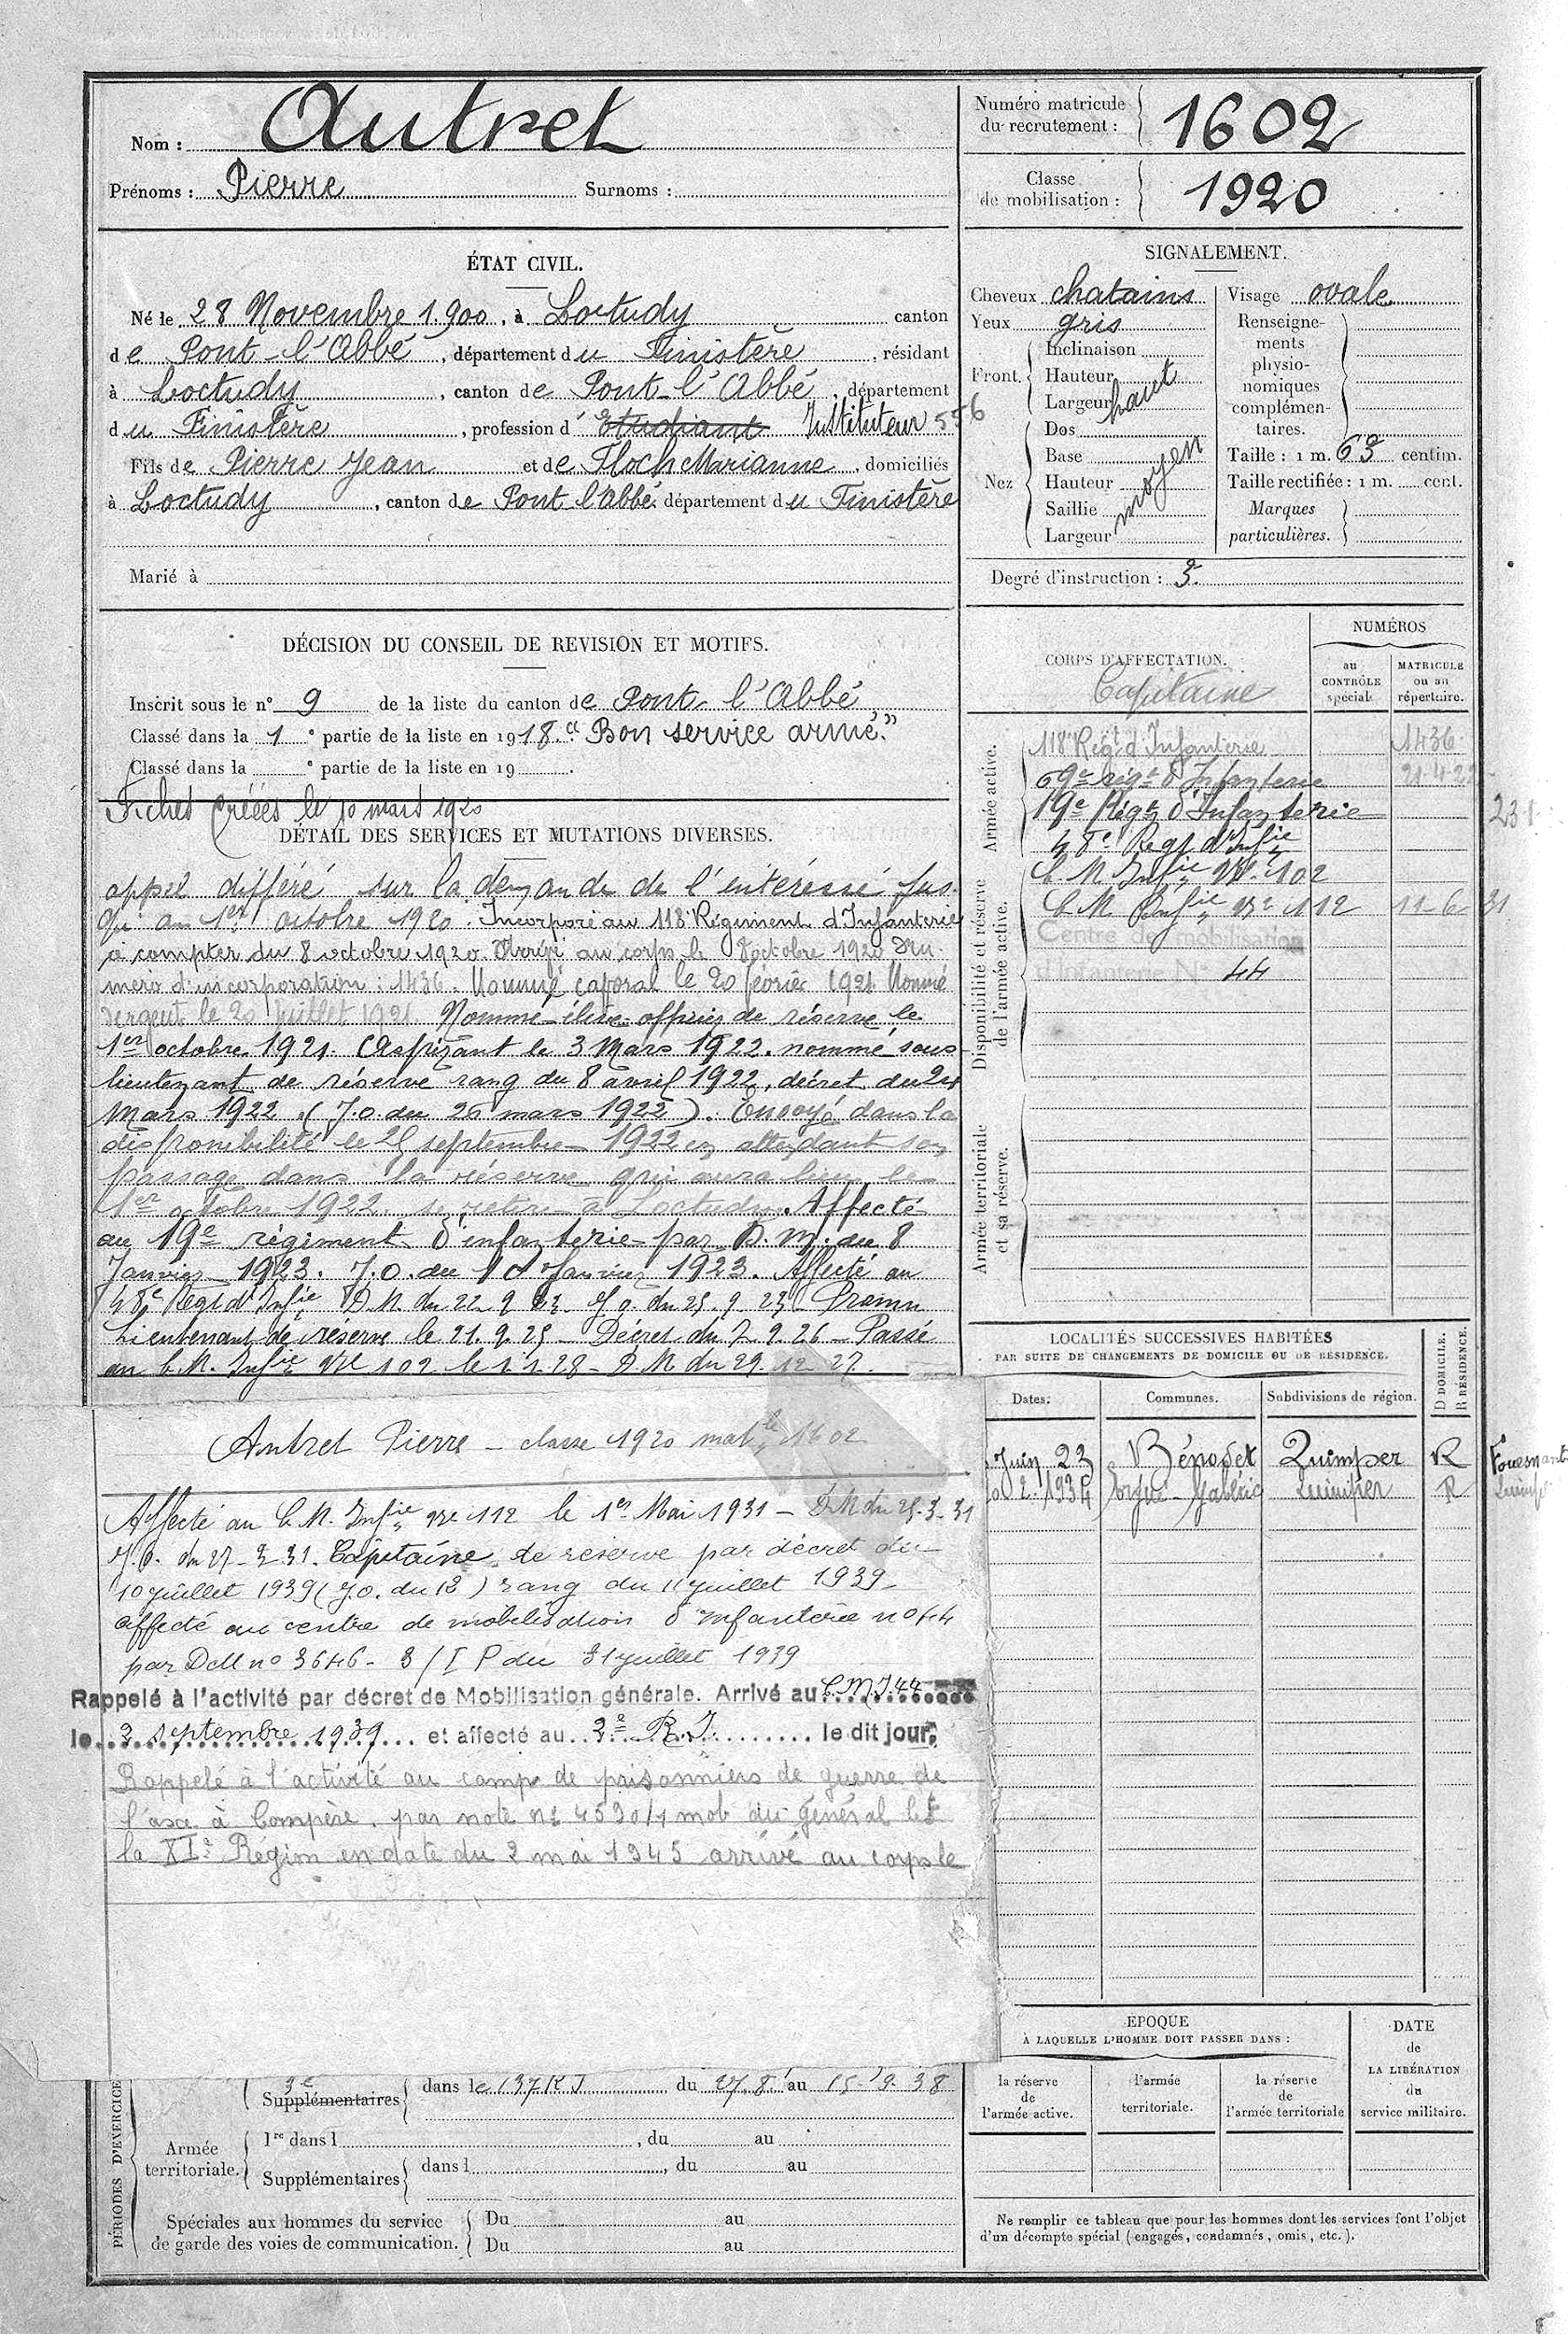 Nom : Autret
Prénoms : Pierre Surnoms :
Numéro matricule du recrutement : 1602
Classe de mobilisation : 1920
ÉTAT CIVIL.
Né le 28 Novembre 1.900, à Loctudy canton
de Pont-l'Abbé, département du Finistère, résidant
à Loctudy, canton de Pont-l'Abbé, département
du Finistère, profession d' Etudiant Instituteur 556
Fils de Pierre Jean et de Floch Marianne, domiciliés
à Loctudy, canton de Pont l'abbé département du Finistère
Marié à
SIGNALEMENT.
Cheveux chatains
Yeux gris
Front. Inclinaison
Hauteur
Largeur haut
Nez Dos
Base
Hauteur
Saillie
Largeur moyen
Visage ovale
Renseigne-
ments
physio-
nomiques
complémen-
taires.
Taille : 1 m. 62 centim.
Taille rectifiée : 1 m. cent.
Marques
particulières.
Degré d'instruction : 3.
DÉCISION DU CONSEIL DE REVISION ET MOTIFS.
Inscrit sous le n° 9 de la liste du canton de Pont-l'Abbé
Classé dans la 1e partie de la liste en 1918. "Bon service armé."
Classé dans la e partie de la liste en 19 .
Fiches créées le 10 mars 1920
DÉTAIL DES SERVICES ET MUTATIONS DIVERSES.
appel différé sur la demande de l'intéressé jus-
qu'au 1er octobre 1920. Incorporé au 118e Régiment d'Infanterie
à compter du 8 octobre 1920. Arrivé au corps le 8 octobre 1920 Nu
méro d'incorporation : 1436. Nommé caporal le 20 février 1921 Nommé
sergent le 20 Juillet 1921. Nommé élève-officier de réserve le
1er octobre 1921. Aspirant le 3 Mars 1922. nommé sous-
lieutenant de réserve rang du 8 avril 1922, décret du 24
Mars 1922 (J.O. du 26 mars 1922). Envoyé dans la
disponibilité le 25 septembre 1922 en attendant son
passage dans la réserve qui aura lieu le
1er octobre 1922. se retire à Loctudy. Affecté
au 19e régiment d'infanterie par D.M. du 8
Janvier 1923. J.O. du 10 Janvier 1923. Affecté au
48e Regt d'Infie D.M. du 22.9.23. J.O. du 25.9.23 - Promu
Lieutenant de réserve le 21.9.25 - Décret du 7.9.26 - Passé
au C.M. Infie No 102 le 1.1.28 - D.M du 29.12.27.
Autret Pierre - classe 1920 matle 1602
Affecté au C.M. Infie No 112 le 1er Mai 1931 - D.M du 25.3.31
J.O. du 27-3-31. Capitaine de réserve par décret du
10 juillet 1939 (J.O. du 12) rang du 11 juillet 1939
affecté au centre de mobilisation d'Infanterie no 44
par DM no 3646-3/I P du 31 juillet 1939
Rappelé à l'activité par décret de Mobilisation générale. Arrivé au C.M.I.44
le 3 septembre 1939 et affecté au 2e R.I. le dit jour.
Rappelé à l'activité au camp de prisonniers de guerre de
l'axe à Compère. par note no 4530/4 mob du général
la XIe Région en date du 2 mai 1945 arrivé au corps le
CORPS D'AFFECTATION.
Capitaine
NUMÉROS
au CONTRÔLE spécial.
MATRICULE ou au répertoire.
Armée active.
118e Regt d'Infanterie 1436
69e régt d'Infanterie 21.4.22
19e Régt d'Infanterie 231
48e Regt d'Infie
Disponibilité et réserve de l'armée active.
C.M Infie No 102
C.M Infie No 112 11-6-31
Centre de mobilisation
d'Infanterie No 44
Armée territoriale et sa réserve.
LOCALITÉS SUCCESSIVES HABITÉES
PAR SUITE DE CHANGEMENTS DE DOMICILE OU DE RÉSIDENCE.
Dates. Communes. Subdivisions de région. D DOMICILE. R RÉSIDENCE.
Juin 23 Bénodet Quimper R Fouesnant
2.1934 Ergué-Gabéric Quimper R
ÉPOQUE
À LAQUELLE L'HOMME DOIT PASSER DANS :
la réserve de l'armée active.
l'armée territoriale.
la réserve de l'armée territoriale
DATE
de
LA LIBÉRATION
du
service militaire.
Ne remplir ce tableau que pour les hommes dont les services font l'objet
d'un décompte spécial (engagés, condamnés, omis, etc.).
PÉRIODES D'EXERCICE
3e
Supplémentaires dans le 137 R I du 27.8 au 15.9.38
Armée territoriale. 1re dans l , du au
Supplémentaires dans l , du au
Spéciales aux hommes du service
de garde des voies de communication.
Du au
Du au